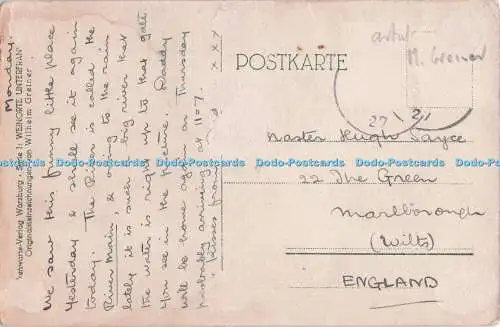 Monday.
We saw this funny little place
Yesterday & shall see it again
today. The River is called the
River Main, & owing to the rain
lately it is such a big river that
the water is right up to that gate
you see in the picture. Daddy
will be home again on Thursday
probably arriving at 11=7.
Kisses from
x x x
Verlag Würzburg · Serie 1: WEINORTE UNTERFRAN
Originalsteinzeichnungen von Wilhelm Greiner
POSTKARTE
M. Greiner
27
Master Hugh Sayce
22 The Green
Marlborough
(Wilts)
ENGLAND
Dodo-Postcards Dodo-Postcards Dodo-Postcards Dodo-Postcards Dodo-Postcards